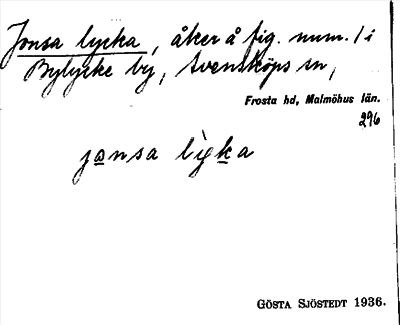 Jonsa lycka, åker å fig. num. 1 i
Bylycke by, Svensköps sn,
Frosta hd, Malmöhus län.
296
jansa lygka
GÖSTA SJÖSTEDT 1936.